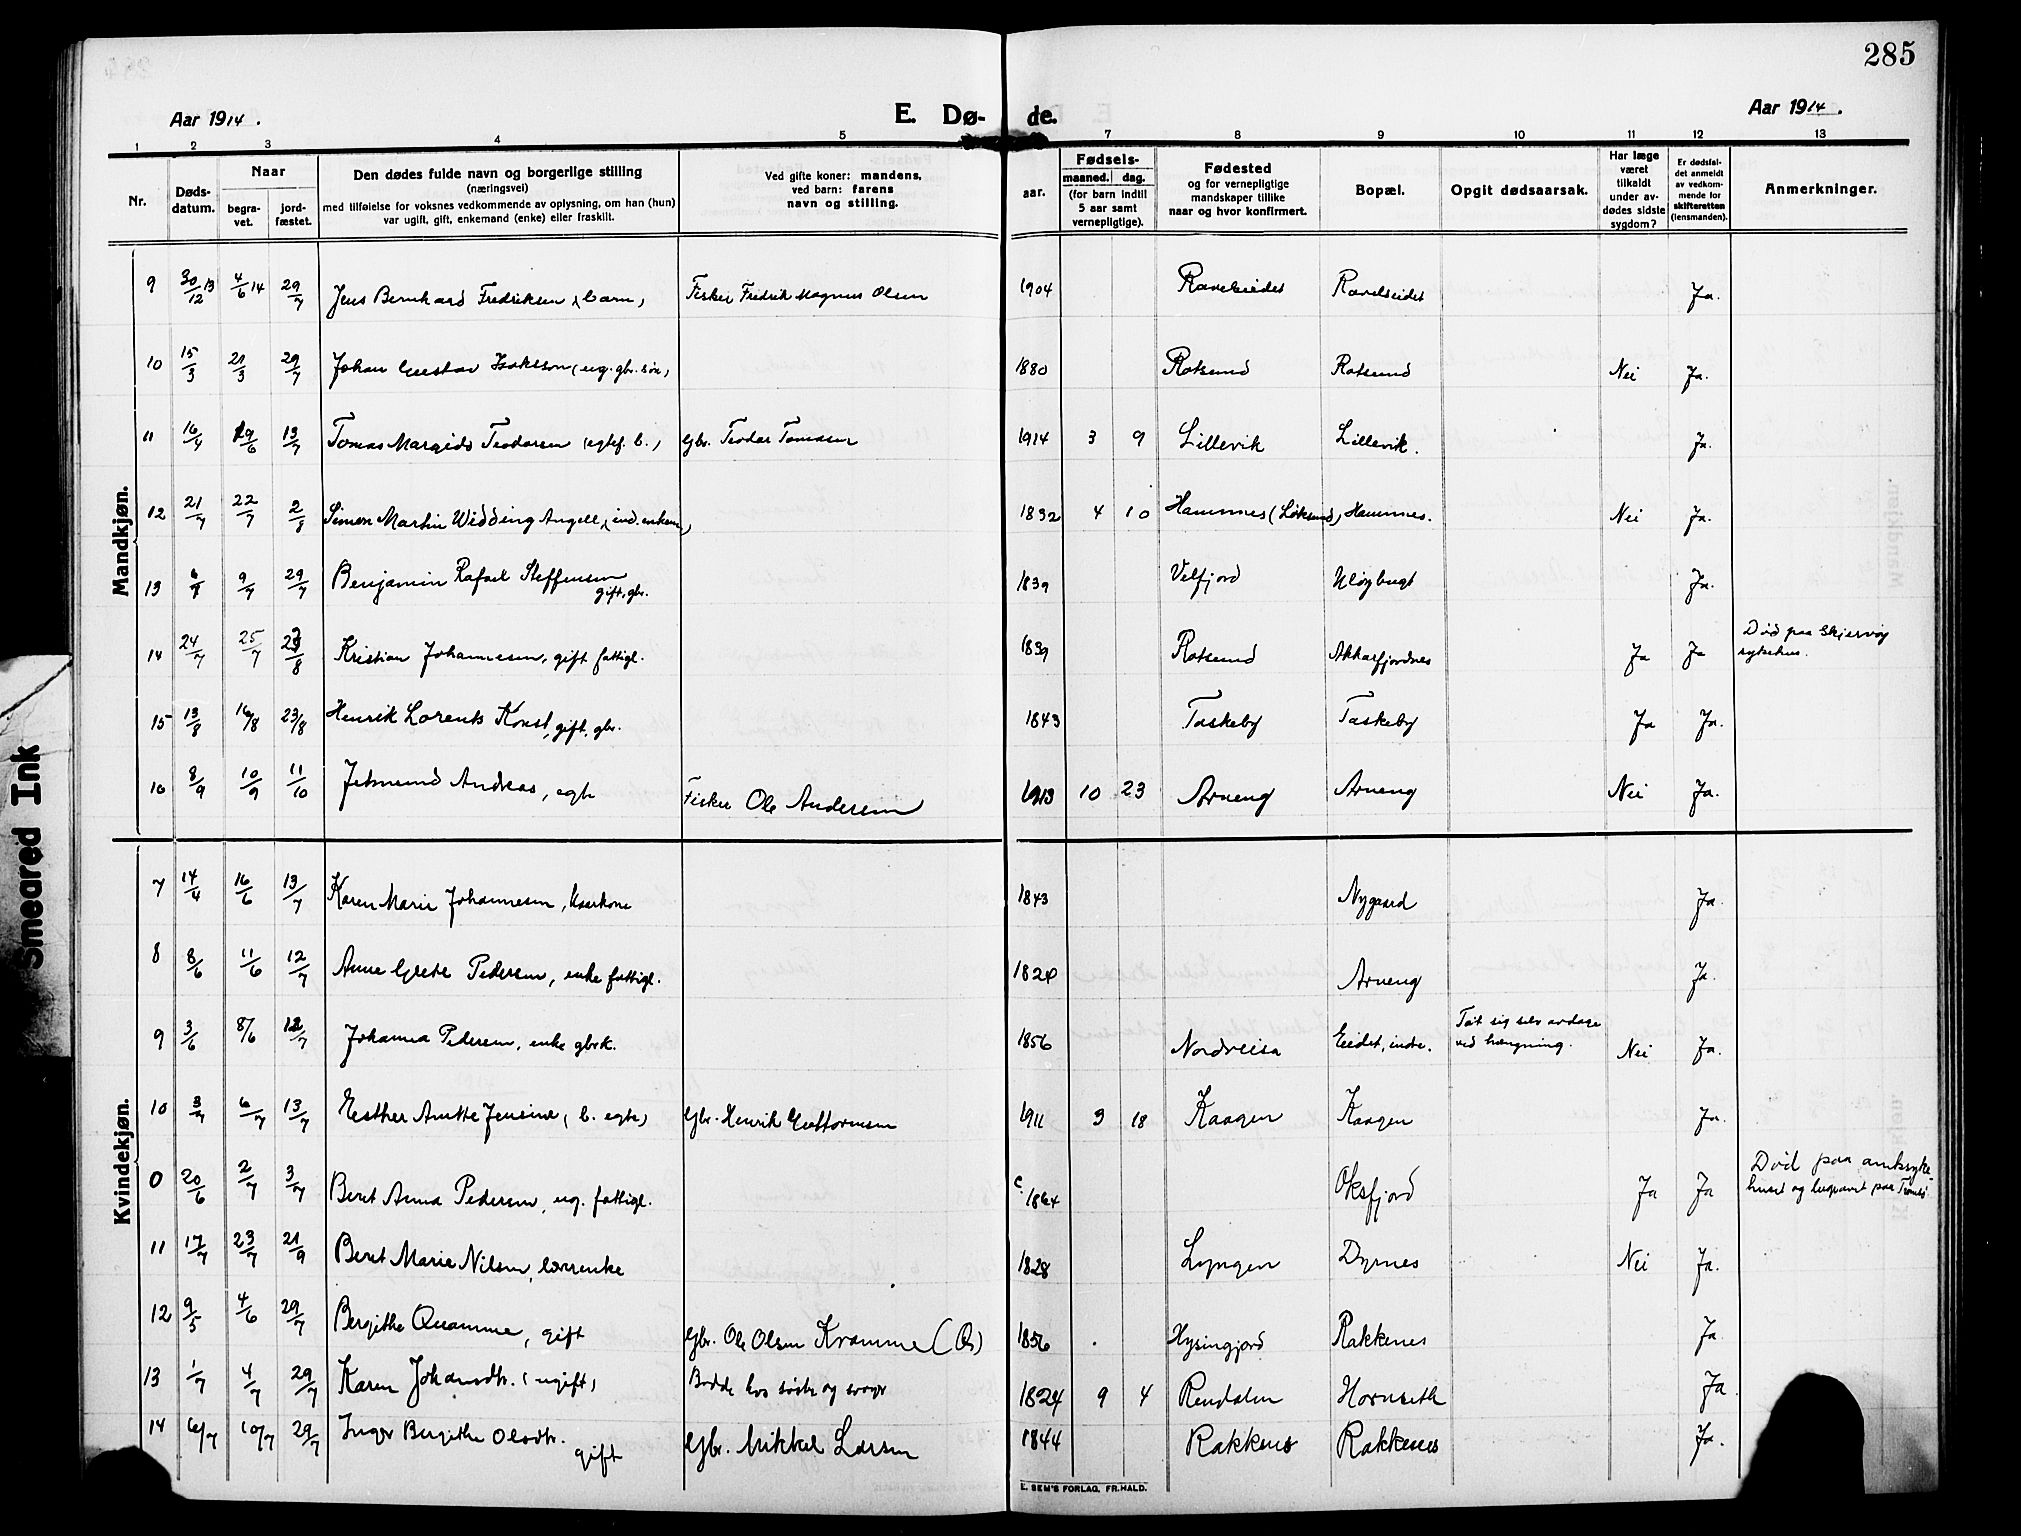 285
Aar 1914.
E. Dø- de.
Aar 1914.
1 2 3 4 5 7 8 9 10 11 12 13
Nr.
Døds-
datum.
Naar
begra-
vet.
jord-
fæstet.
Den dødes fulde navn og borgerlige stilling
(næringsvei)
med tilføielse for voksnes vedkommende av oplysning, om han (hun)
var ugift, gift, enkemand (enke) eller fraskilt.
Ved gifte koner: mandens,
ved barn: farens
navn og stilling.
aar.
Fødsels-
maaned. dag.
(for barn indtil
5 aar samt
vernepligtige).
Fødested
og for vernepligtige
mandskaper tillike
naar og hvor konfirmert.
Bopæl.
Opgit dødsaarsak.
Har læge
været
tilkaldt
under av-
dødes sidste
sygdom?
Er dødsfal-
det anmeldt
av vedkom-
mende for
skifteretten
(lensmanden).
Anmerkninger.
Mandkjøn.
9 30/12 13 4/6 14 29/7 Jens Bernhard Fredriksen (barn) Fisker Fredrik Magnus Olsen 1904 Ravelseidet Ravelseidet Ja.
10 15/3 21/3 29/7 Johan Gustav Isaksson (ug. gbr. søn) 1880 Rotsund Rotsund Nei Ja.
11 16/4 19/6 13/7 Tomas Margido Teodorsen (egtef. b.) Gbr. Teodor Tomasen 1914 3 9 Lillevik Lillevik. Ja.
12 21/7 22/7 2/8 Simon Martin Widding Angell, 1832 4 10 Hamnes (Loksund) Hamnes. Nei Ja.
13 9/7 29/7 Benjamin Rafael Steffensen
gift, gbr. 1839 Velfjord Uløybugt Ja.
14 24/7 25/7 Kristian Johannesen, gift fattigl. 1839 Rotsund Akkarfjordnes Ja Ja Død paa Skjervøy
sykehus.
15 13/8 16/8 23/8 Henrik Lorents Konst, gift, gbr. 1843 Taskeby Taskeby Ja Ja.
16 8/9 10/9 11/10 Jetmund Andreas, egte Fisker Ole Andersen 1913 10 23 Arneng Arneng Nei Ja.
Kvindekjøn.
7 14/4 16/6 13/7 Karen Marie Johannesen, kaarkone 1843 Nygaard Ja.
8 8/6 11/6 12/7 Anne Grete Pedersen, enke fattigl. 1824 Arneng Ja.
9 3/6 8/6 12/7 Johanna Pedersen, enke gbrk. 1856 Nordreisa Eidet, indre. Tat sig selv avdage
ved hængning. Nei Ja.
10 3/7 6/7 13/7 Esther Anette Jensine (b. egte) Gbr. Henrik Guttormsen 1911 3 18 Kaagen Kaagen Ja.
0 20/6 2/7 3/7 Beret Anna Pedersen, ug. fattigl. c. 1864 Oksfjord Ja Ja Død paa amtsyke-
huset og begravet paa Tromsø.
11 17/7 23/7 21/9 Beret Marie Nilsen, 1828 Lyngen Dyrnes Nei Ja.
12 9/5 4/6 29/7 Bergithe Quamme, gift Gbr. Ole Olsen Kvamme (Q) 1856 Hysingjord Rakkenes Ja.
13 1/7 4/7 29/7 Karen Johansdtr. (ugift) Bodde hos søster og svoger 1824 9 4 Rendalen Hornseth Ja.
14 6/7 10/7 29/7 Inger Bergithe Olsdtr.
gift Gbr. Mikkel Larsen 1844 Rakkenes Rakkenes Ja.
E. SEM'S FORLAG, FR.HALD.
Smeared Ink